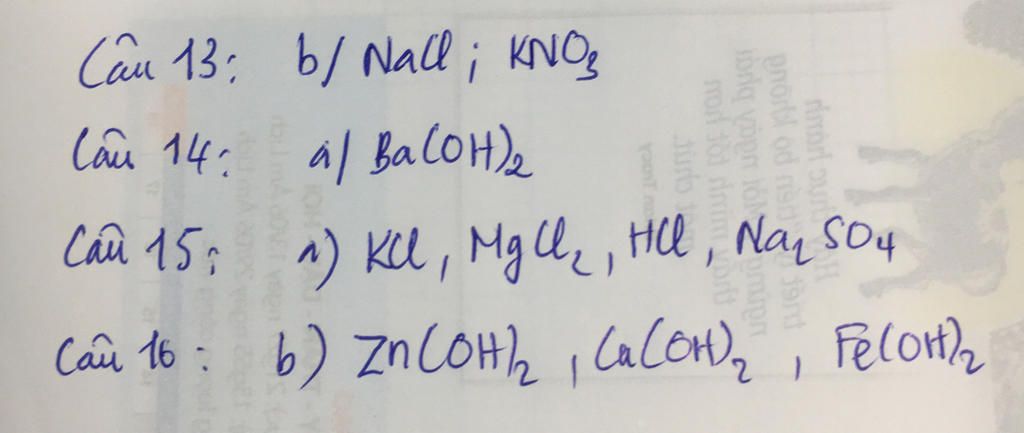 Câu 13: b/ NaCl ; KNO₃
Câu 14: a/ Ba(OH)₂
Câu 15: a) KCl, MgCl₂, HCl, Na₂SO₄
Câu 16: b) Zn(OH)₂, Ca(OH)₂, Fe(OH)₂